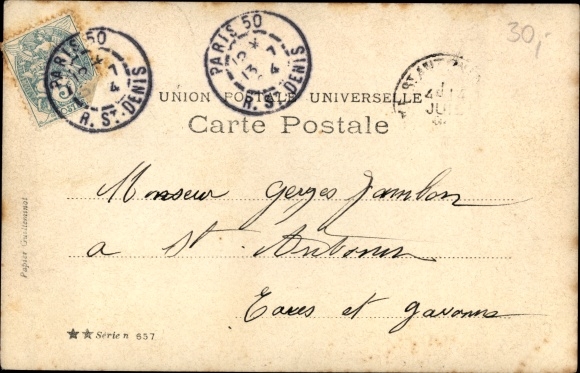 30,
PARIS 50
12 * 7
13 4
R. St. DENIS
PARIS 50
12 * 7
13 4
R. St. DENIS
JUIL
UNION POSTALE UNIVERSELLE
Carte Postale
Monsieur gerges Jambon
a St Antonin
Tares et garonne
Papier Guilleminot
★★ Série n 657